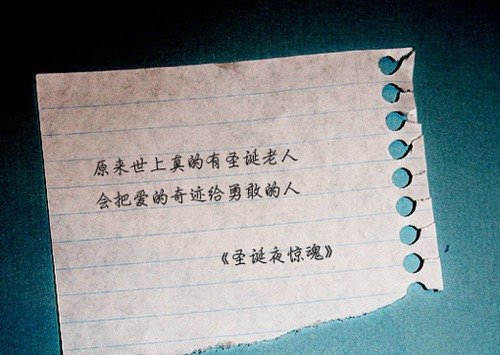 原来世上真的有圣诞老人
会把爱的奇迹给勇敢的人
《圣诞夜惊魂》